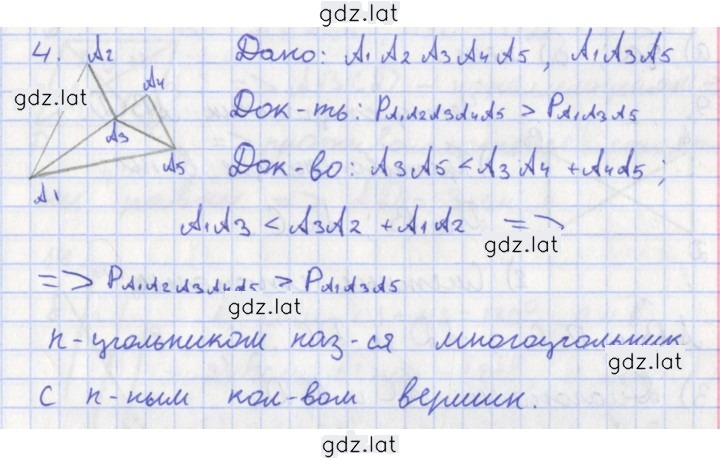 gdz.lat
4. A2 Дано: A1A2A3A4A5, A1A3A5
A4
gdz.lat Док-ть: PA1A2A3A4A5 > PA1A3A5
A3
A5 Док-во: A3A5 < A3A4 + A4A5;
A1
A1A3 < A3A2 + A1A2 =>
gdz.lat
=> PA1A2A3A4A5 > PA1A3A5
gdz.lat
n-угольником наз-ся многоугольник
gdz.lat
с n-ным кол-вом вершин.
gdz.lat